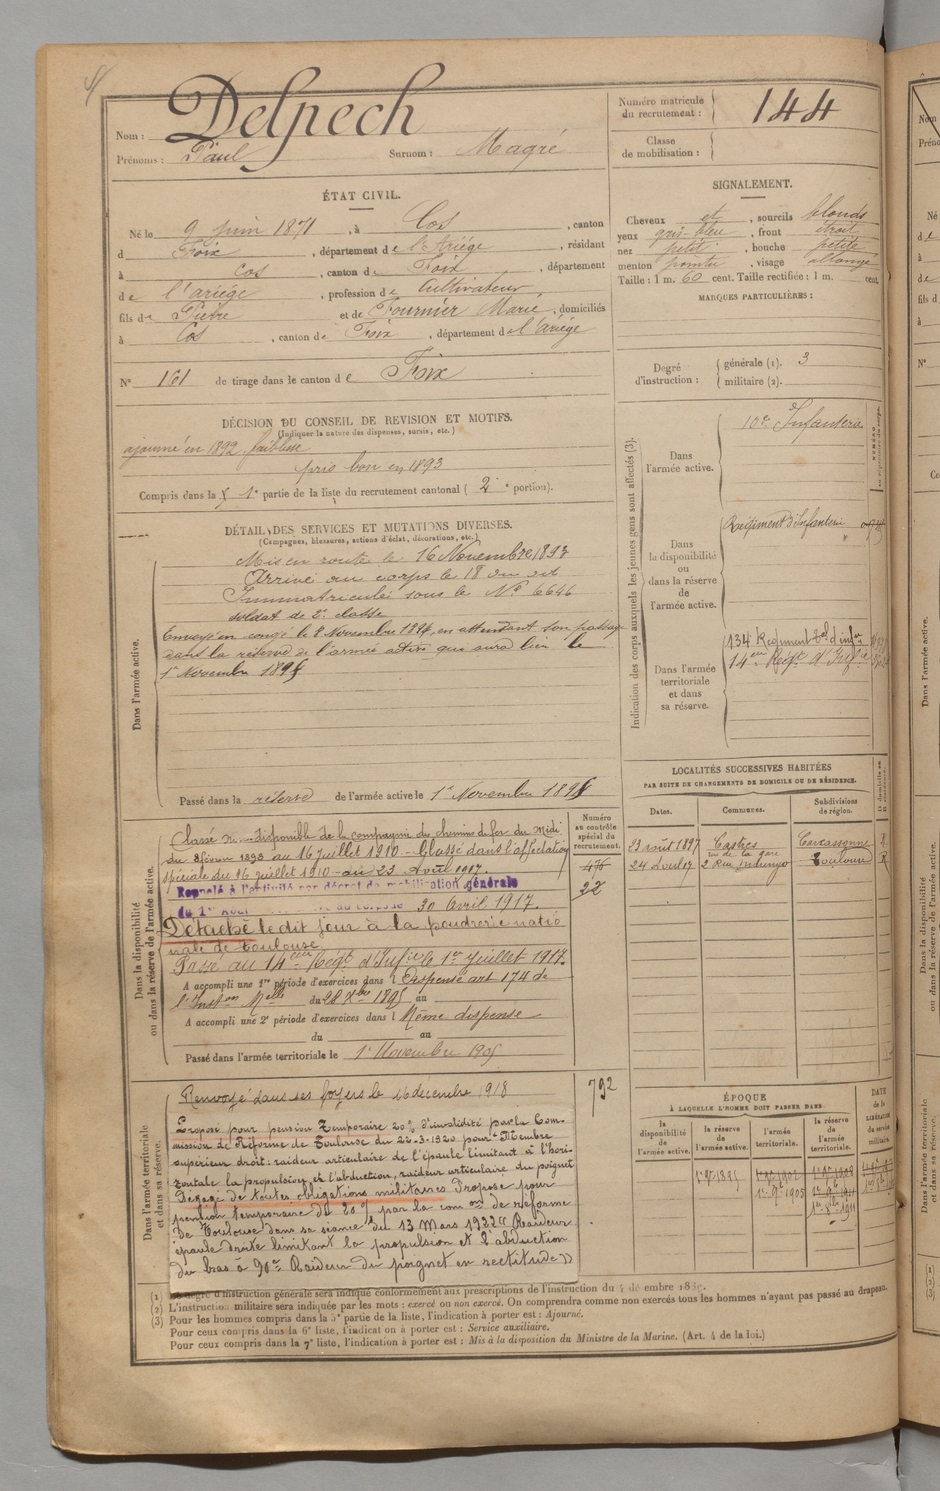 Nom : Delpech
Prénoms : Paul Surnom : Magré
Numéro matricule du recrutement : 144
Classe de mobilisation :
ÉTAT CIVIL.
Né le 9 juin 1871, à Cos, canton
d Foix, département de l'Ariége, résidant
à Cos, canton de Foix, département
de l'ariége, profession de Cultivateur
fils de Pierre et de Fournier Marie, domiciliés
à Cos, canton de Foix, département de l'ariége
N° 161 de tirage dans le canton de Foix
SIGNALEMENT.
Cheveux et, sourcils blonds
yeux gris-bleu, front étroit
nez petit, bouche petite
menton pointu, visage allongé
Taille : 1 m. 60 cent. Taille rectifiée : 1 m. cent.
MARQUES PARTICULIÈRES :
Degré d'instruction : générale (1). 3
militaire (2).
DÉCISION DU CONSEIL DE REVISION ET MOTIFS.
(Indiquer la nature des dispenses, sursis, etc.)
ajourné en 1892 faiblesse
pris bon en 1893
Compris dans la 1e partie de la liste du recrutement cantonal ( 2e portion).
DÉTAIL DES SERVICES ET MUTATIONS DIVERSES.
(Campagnes, blessures, actions d'éclat, décorations, etc.)
Dans l'armée active.
Mis en route le 16 Novembre 1893
Arrivé au corps le 18 du dit
Immatriculé sous le N° 6646
soldat de 2e classe
Envoyé en congé le 8 Novembre 1894, en attendant son passage
dans la réserve de l'armée active qui aura lieu le
1er Novembre 1895
Passé dans la réserve de l'armée active le 1er Novembre 1895
Indication des corps auxquels les jeunes gens sont affectés (3).
Dans l'armée active.
d'Infanterie
Dans la disponibilité ou dans la réserve de l'armée active.
Régiment d'Infanterie
Dans l'armée territoriale et dans sa réserve.
134e Régiment Tal d'infie
14eme Régt d'Infie
LOCALITÉS SUCCESSIVES HABITÉES
PAR SUITE DE CHANGEMENTS DE DOMICILE OU DE RÉSIDENCE.
Dates. Communes. Subdivisions de région.
23 août 1897 Castres Carcassonne
rue de la gare
Toulouse
Numéro au contrôle spécial du recrutement.
476
22
Dans la disponibilité ou dans la réserve de l'armée active.
Classé non disponible de la compagnie du chemins de fer du Midi
du février 1898 au 16 Juillet 1910 - Classé dans l'affectation
spéciale du 16 juillet 1910 au 23 Avril 1917.
Rappelé à l'activité par décret de mobilisation générale
du 1er Août 30 Avril 1917.
Détaché le dit jour à la poudrerie natio
nale de Toulouse
Passé au 14eme Régt d'Infie le 1er Juillet 1917.
A accompli une 1re période d'exercices dans l Dispensé art 174 de
l'Inston Melle du 28 Xbre 1895 au
A accompli une 2e période d'exercices dans l Même dispense
du au
Passé dans l'armée territoriale le 1er Novembre 1905
792
Dans l'armée territoriale et dans sa réserve.
Renvoyé dans ses foyers le 16 decembre 1918
Proposé pour pension Temporaire 20% d'invalidité par la Com-
mission de Réforme de Toulouse du 22-3-1920 pour : Membre
supérieur droit : raideur articulaire de l'épaule limitant à l'hori-
zontale la propulsion et l'abduction, raideur articulaire du poignet
Dégagé de toutes obligations militaires Proposé pour
pension temporaire du 20% par la com on de réforme
de Toulouse dans sa séance du 13 Mars 1922 (( Raideur
épaule droite limitant la propulsion et l'abduction
du bras à 90° Raideur du poignet en rectitude ))
ÉPOQUE
À LAQUELLE L'HOMME DOIT PASSER DANS
la disponibilité de l'armée active. la réserve de l'armée active. l'armée territoriale. la réserve de l'armée territoriale. DATE de la LIBÉRATION du service militaire.
1er 9bre 1895
1er 9bre 1905
(1) Le degré d'instruction générale sera indiqué conformément aux prescriptions de l'instruction du 4 décembre
(2) L'instruction militaire sera indiquée par les mots : exercé ou non exercé. On comprendra comme non exercés tous les hommes n'ayant pas passé au drapeau.
(3) Pour les hommes compris dans la 5e partie de la liste, l'indication à porter est : Ajourné.
Pour ceux compris dans la 6e liste, l'indication à porter est : Service auxiliaire.
Pour ceux compris dans la 7e liste, l'indication à porter est : Mis à la disposition du Ministre de la Marine. (Art. 4 de la loi.)